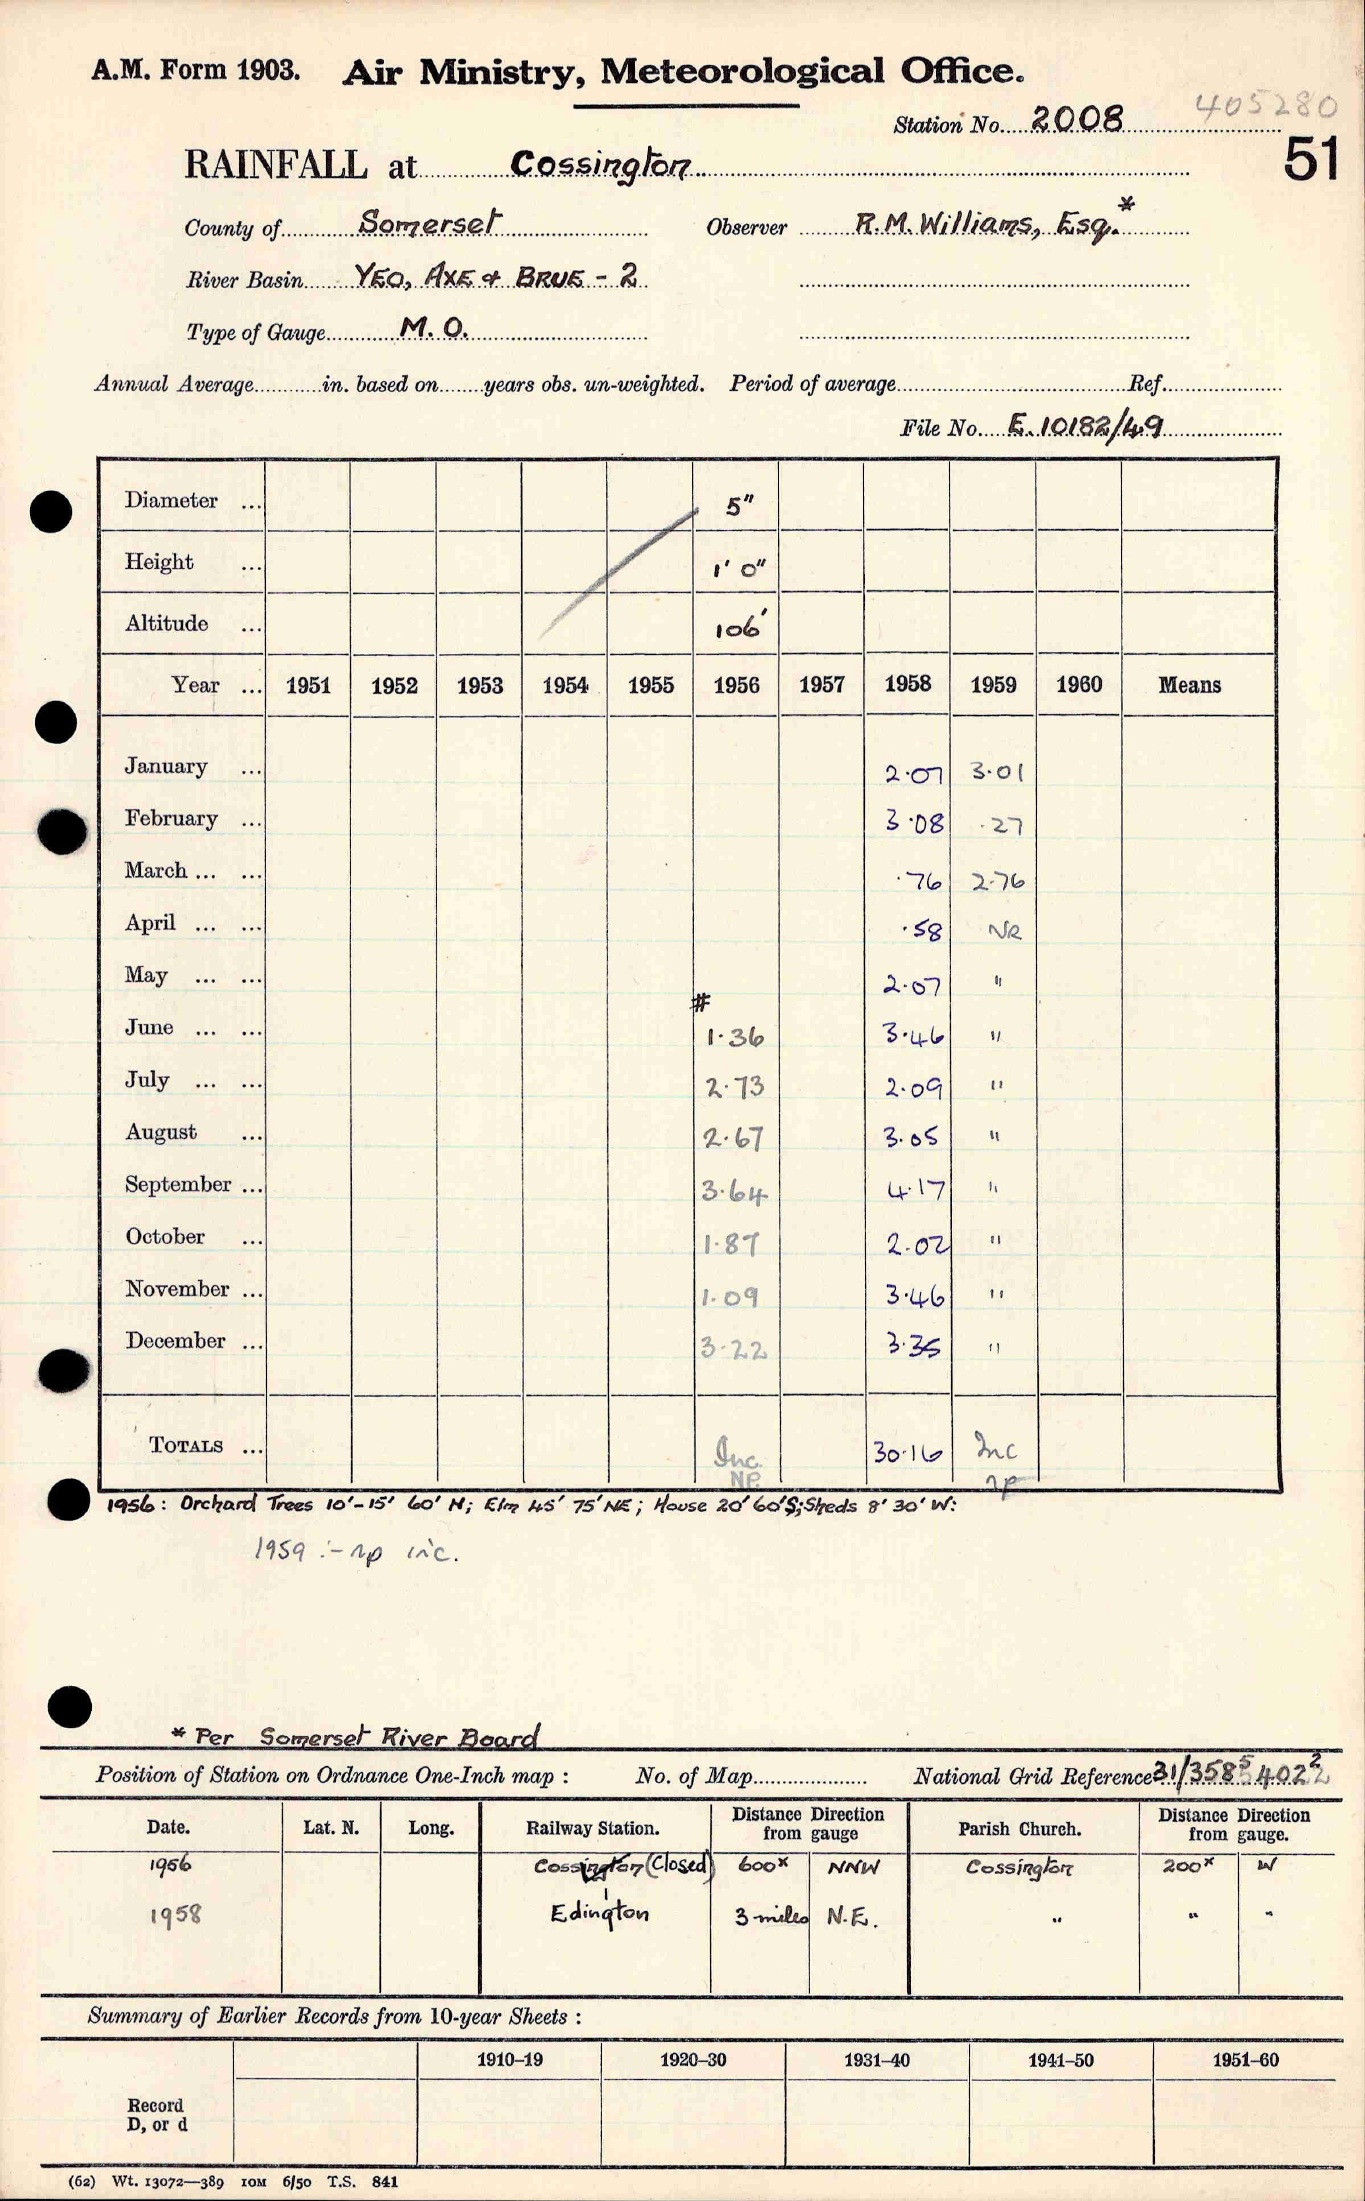 A.M. Form 1903. Air Ministry, Meteorological Office.
405280
Station No. 2008
51
RAINFALL at Cossington
County of Somerset Observer R.M. Williams, Esq.*
River Basin YEO, AXE & BRUE - 2
Type of Gauge M. O.
Annual Average in. based on years obs. un-weighted. Period of average Ref.
File No. E. 10182/49
Diameter ... 5"
Height ... 1' 0"
Altitude ... 106'
Year ... 1951 1952 1953 1954 1955 1956 1957 1958 1959 1960 Means
January ... 2.07 3.01
February ... 3.08 .27
March ... ... .76 2.76
April ... ... .58 NR
May ... ... 2.07 "
#
June ... ... 1.36 3.46 "
July ... ... 2.73 2.09 "
August ... 2.67 3.05 "
September ... 3.64 4.17 "
October ... 1.87 2.02 "
November ... 1.09 3.46 "
December ... 3.22 3.35 "
TOTALS ... Inc. 30.16 Inc
NP. np
1956: Orchard Trees 10'-15' 60' N; Elm 45' 75' NE; House 20' 60' S; Sheds 8' 30' W:
1959 :- np inc.
* Per Somerset River Board
Position of Station on Ordnance One-Inch map : No. of Map National Grid Reference 31/358⁵ 402²
Date. Lat. N. Long. Railway Station. Distance from gauge Direction Parish Church. Distance from gauge. Direction
1956 Cossington (Closed) 600x NNW Cossington 200x W
1958 Edington 3 miles N.E. " " "
Summary of Earlier Records from 10-year Sheets :
1910–19 1920–30 1931–40 1941–50 1951–60
Record
D, or d
(62) Wt. 13072—389 10M 6/50 T.S. 841